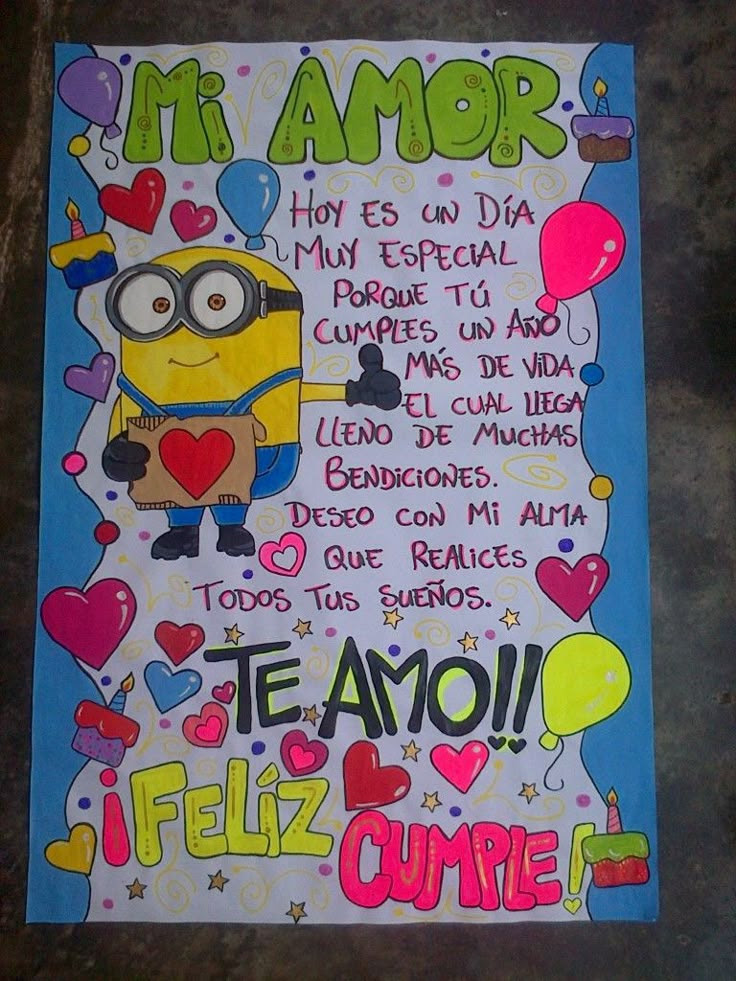 MI AMOR
HOY ES UN DÍA
MUY ESPECIAL
PORQUE TÚ
CUMPLES UN AÑO
MÁS DE VIDA
EL CUAL LLEGA
LLENO DE MUCHAS
BENDICIONES.
DESEO CON MI ALMA
QUE REALICES
TODOS TUS SUEÑOS.
TE AMO!!
¡FELÍZ
CUMPLE!